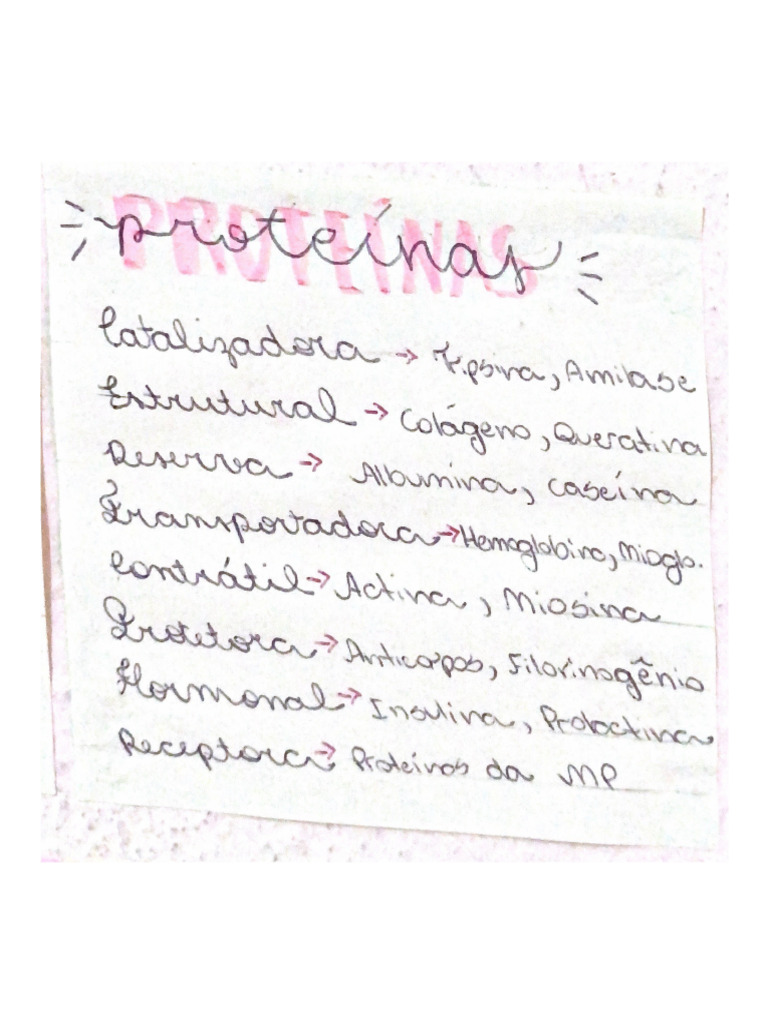 PROTEÍNAS
proteínas
Catalizadora → Tripsina, Amilase
Estrutural → Colágeno, Queratina
Reserva → Albumina, Caseína
Transportadora → Hemoglobina, Mioglo.
Contrátil → Actina, Miosina
Protetora → Anticorpos, Fibrinogênio
Hormonal → Insulina, Prolactina
Receptora → Proteínas da MP